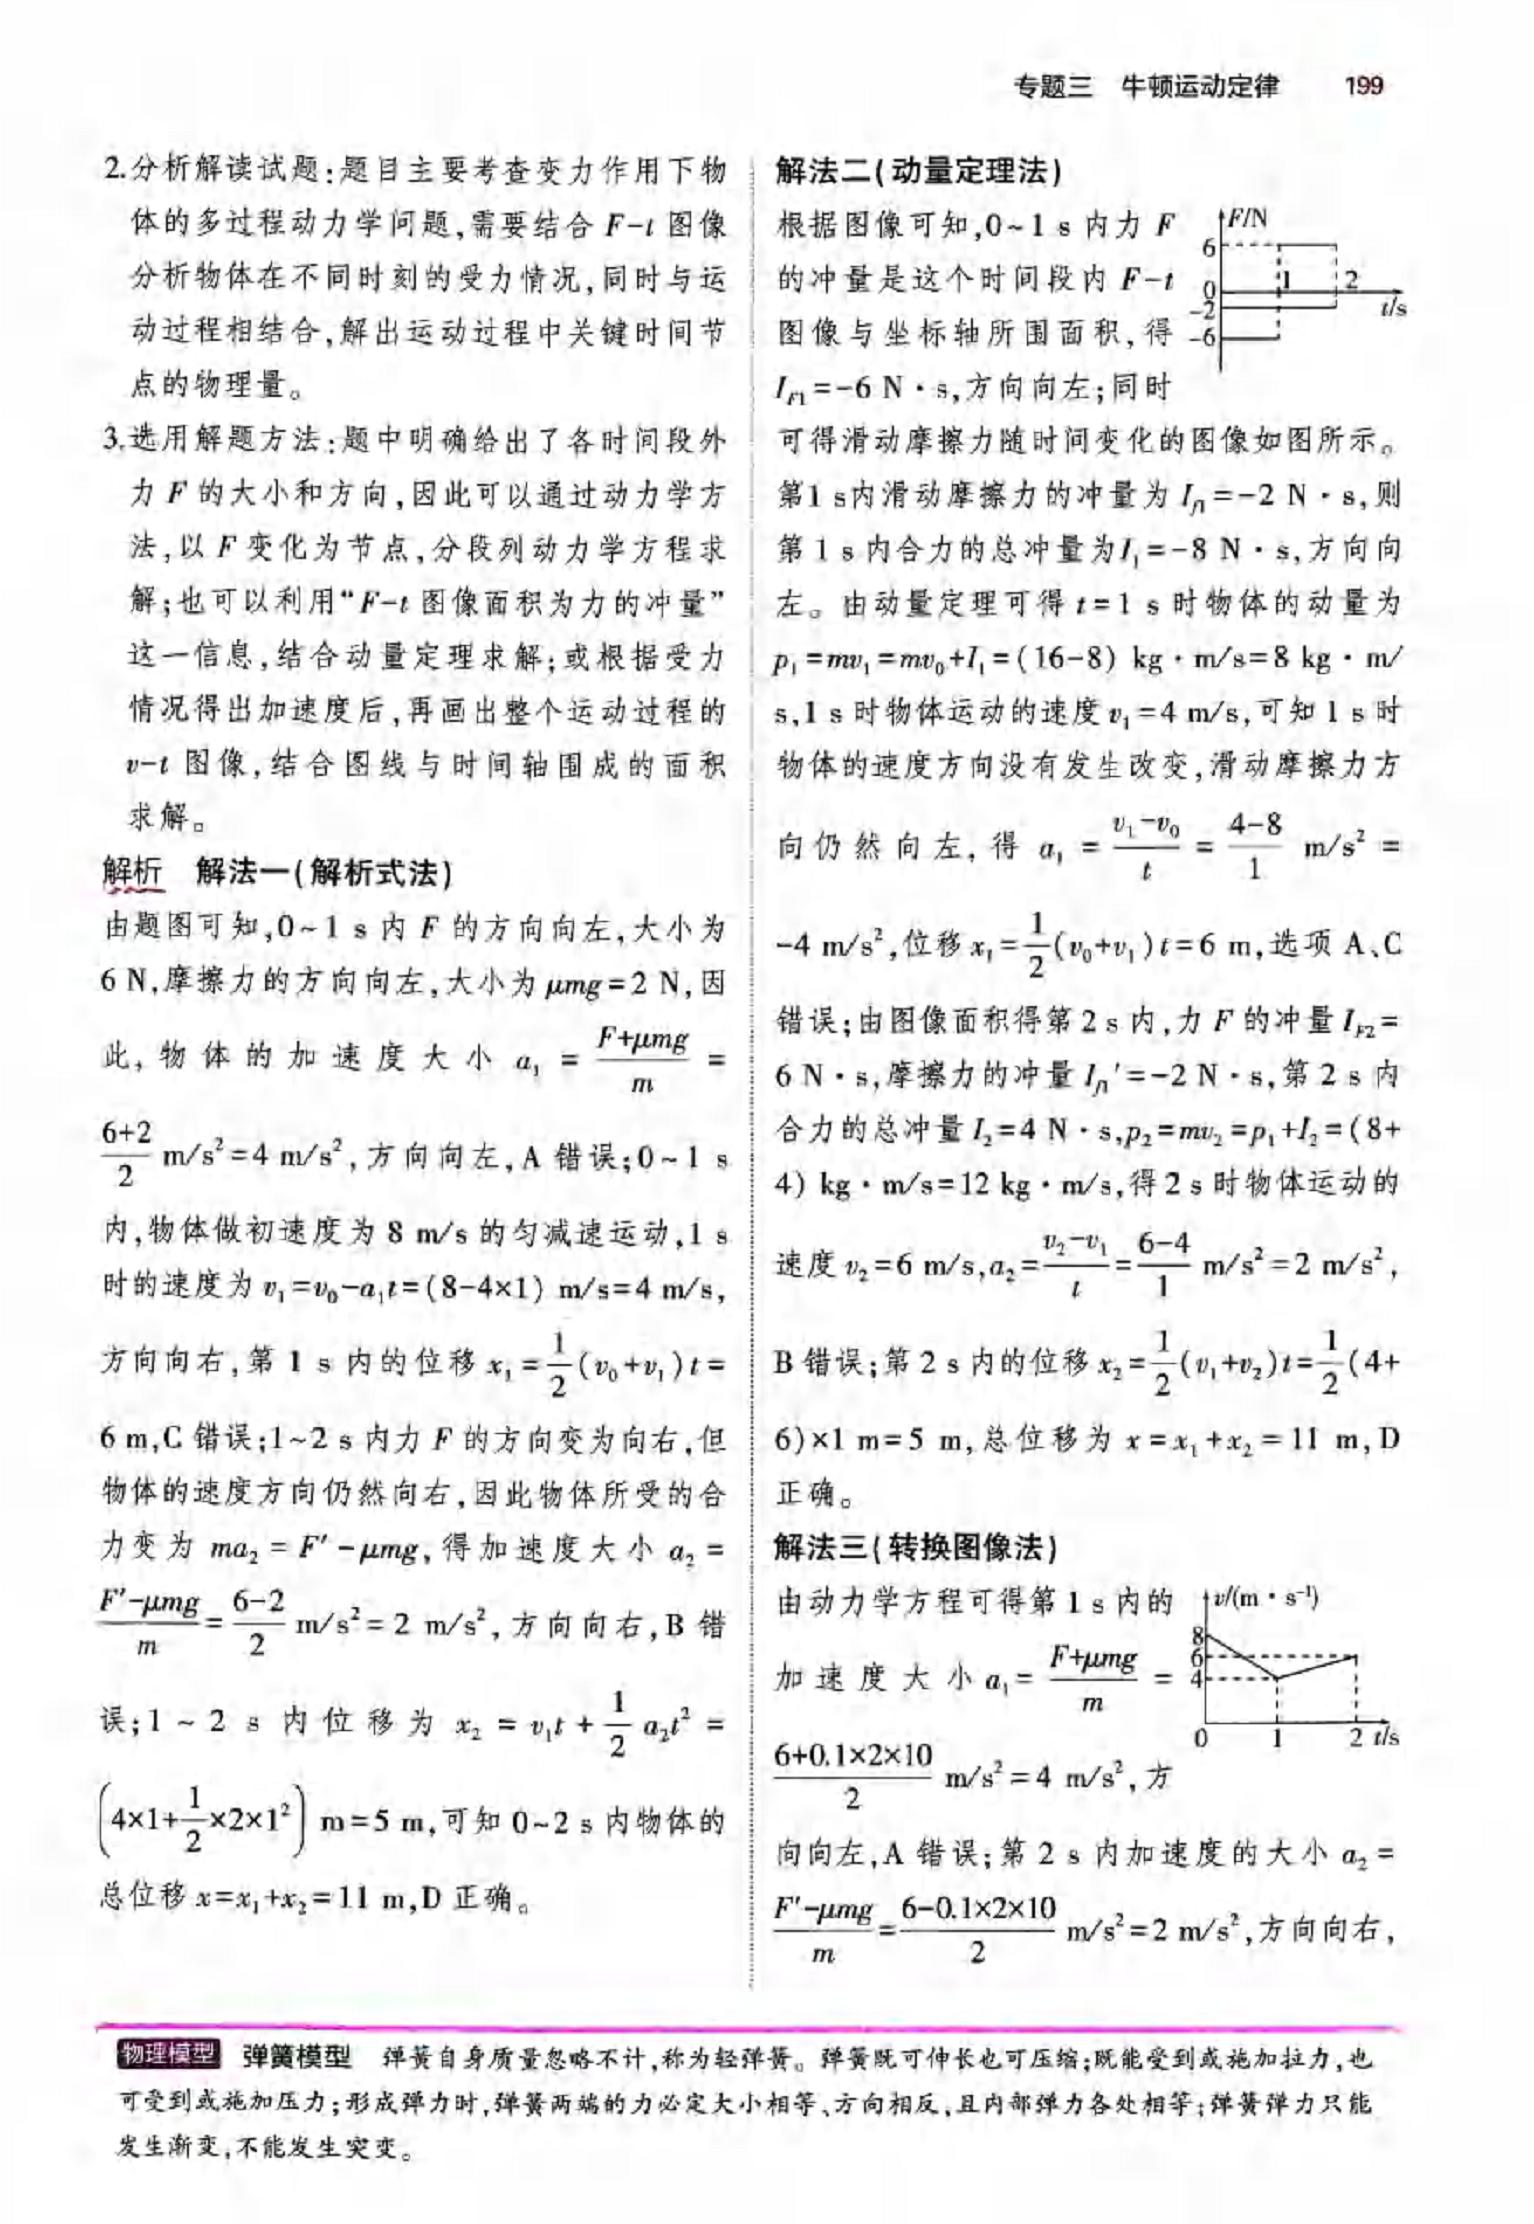 专题三 牛顿运动定律 199
2.分析解读试题:题目主要考查变力作用下物
体的多过程动力学问题,需要结合 F-t 图像
分析物体在不同时刻的受力情况,同时与运
动过程相结合,解出运动过程中关键时间节
点的物理量。
3.选用解题方法:题中明确给出了各时间段外
力 F 的大小和方向,因此可以通过动力学方
法,以 F 变化为节点,分段列动力学方程求
解;也可以利用“F-t 图像面积为力的冲量”
这一信息,结合动量定理求解;或根据受力
情况得出加速度后,再画出整个运动过程的
v-t 图像,结合图线与时间轴围成的面积
求解。
解析 解法一(解析式法)
由题图可知,0~1 s 内 F 的方向向左,大小为
6 N,摩擦力的方向向左,大小为 μmg=2 N,因
此,物体的加速度大小 a₁ = (F+μmg)/m =
(6+2)/2 m/s²=4 m/s²,方向向左,A 错误;0~1 s
内,物体做初速度为 8 m/s 的匀减速运动,1 s
时的速度为 v₁=v₀-a₁t=(8-4×1) m/s=4 m/s,
方向向右,第 1 s 内的位移 x₁=1/2(v₀+v₁)t=
6 m,C 错误;1~2 s 内力 F 的方向变为向右,但
物体的速度方向仍然向右,因此物体所受的合
力变为 ma₂ = F′-μmg,得加速度大小 a₂ =
(F′-μmg)/m=(6-2)/2 m/s²=2 m/s²,方向向右,B 错
误;1~2 s 内位移为 x₂ = v₁t + 1/2 a₂t² =
(4×1+1/2×2×1²) m=5 m,可知 0~2 s 内物体的
总位移 x=x₁+x₂=11 m,D 正确。
解法二(动量定理法)
根据图像可知,0~1 s 内力 F
的冲量是这个时间段内 F-t
图像与坐标轴所围面积,得
I_F1=-6 N·s,方向向左;同时
F/N
6
0 1 2
-2
t/s
-6
可得滑动摩擦力随时间变化的图像如图所示。
第1 s内滑动摩擦力的冲量为 I_f1=-2 N·s,则
第 1 s 内合力的总冲量为I₁=-8 N·s,方向向
左。由动量定理可得 t=1 s 时物体的动量为
p₁=mv₁=mv₀+I₁=(16-8) kg·m/s=8 kg·m/
s,1 s 时物体运动的速度 v₁=4 m/s,可知 1 s 时
物体的速度方向没有发生改变,滑动摩擦力方
向仍然向左,得 a₁ = (v₁-v₀)/t = (4-8)/1 m/s² =
-4 m/s²,位移 x₁=1/2(v₀+v₁)t=6 m,选项 A、C
错误;由图像面积得第 2 s 内,力 F 的冲量 I_F2=
6 N·s,摩擦力的冲量 I_f1′=-2 N·s,第 2 s 内
合力的总冲量 I₂=4 N·s,p₂=mv₂=p₁+I₂=(8+
4) kg·m/s=12 kg·m/s,得 2 s 时物体运动的
速度 v₂=6 m/s,a₂=(v₂-v₁)/t=(6-4)/1 m/s²=2 m/s²,
B 错误;第 2 s 内的位移 x₂=1/2(v₁+v₂)t=1/2(4+
6)×1 m=5 m,总位移为 x=x₁+x₂=11 m,D
正确。
解法三(转换图像法)
由动力学方程可得第 1 s 内的
加速度大小 a₁= (F+μmg)/m =
(6+0.1×2×10)/2 m/s²=4 m/s²,方
v/(m·s⁻¹)
8
6
4
0 1 2 t/s
向向左,A 错误;第 2 s 内加速度的大小 a₂ =
(F′-μmg)/m=(6-0.1×2×10)/2 m/s²=2 m/s²,方向向右,
物理模型 弹簧模型 弹簧自身质量忽略不计,称为轻弹簧。弹簧既可伸长也可压缩;既能受到或施加拉力,也
可受到或施加压力;形成弹力时,弹簧两端的力必定大小相等、方向相反,且内部弹力各处相等;弹簧弹力只能
发生渐变,不能发生突变。